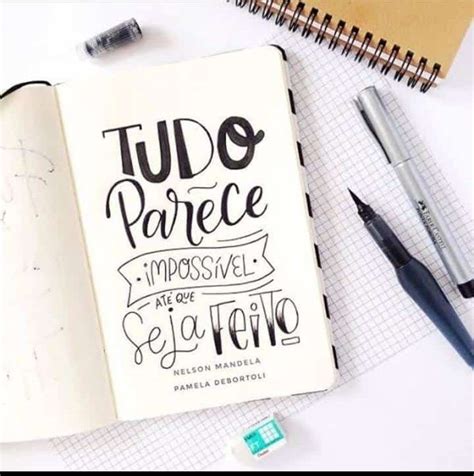 TUDO
Parece
IMPOSSÍVEL
ATÉ QUE
Seja FEITO
NELSON MANDELA
PAMELA DEBORTOLI